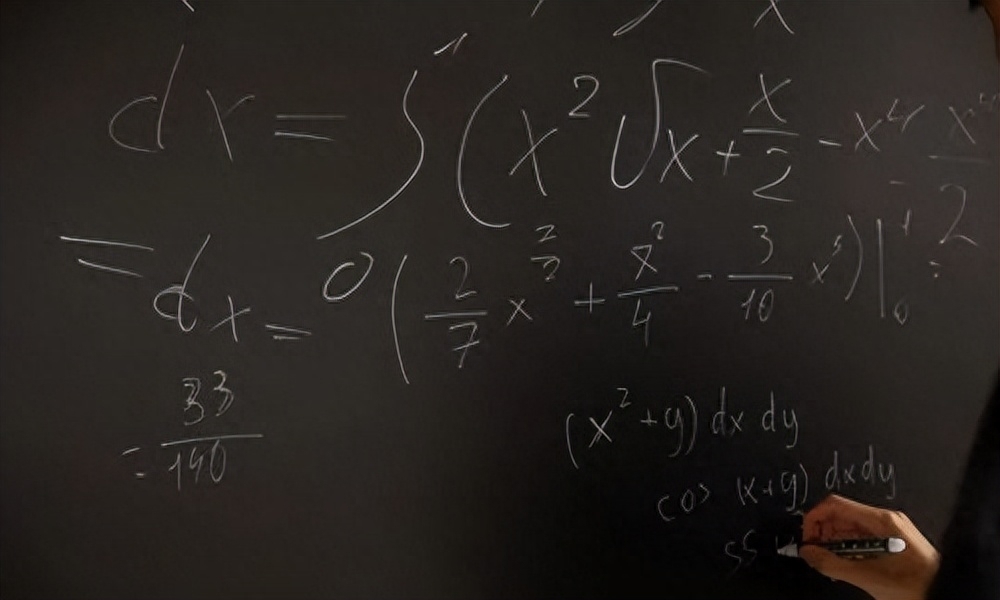 dx = ∫₀¹ (x² √x + x/2 - x⁴ - x⁴/2
= dx = (2/7 x^(7/2) + x²/4 - 3/10 x⁵)|₀¹ =
= 33/140
(x² + y) dx dy
cos (x+y) dx dy
SS